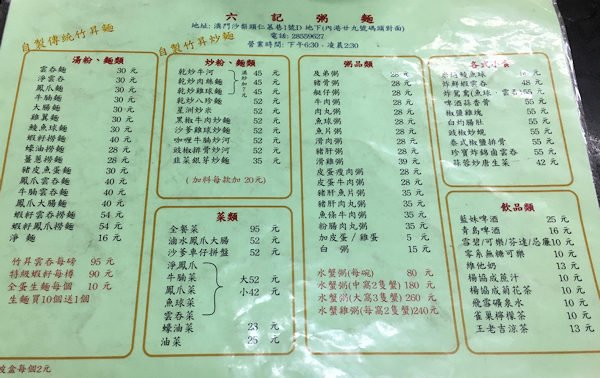 六記粥麵
地址: 澳門沙梨頭仁慕巷1號D 地下(內港廿九號碼頭對面)
電話: 28559627
營業時間: 下午6:30 - 凌晨2:30
自製傳統竹昇麵
湯粉、麵類
雲吞麵 30 元
淨雲吞 30 元
鳳爪麵 30 元
牛腩麵 30 元
大腸麵 30 元
雞翼麵 30 元
鯪魚球麵 30 元
蝦籽撈麵 30 元
蠔油撈麵 28 元
薑蔥撈麵 28 元
豬皮魚蛋麵 30 元
鳳爪雲吞麵 40 元
牛腩雲吞麵 40 元
鳳爪牛腩麵 40 元
蝦籽雲吞撈麵 54 元
蝦籽鳳爪撈麵 54 元
淨麵 16 元
竹昇雲吞每磅 95 元
特級蝦籽每樽 90 元
全蛋生麵每個 10 元
生麵買10個送1個
自製竹昇炒麵
炒粉、麵類
乾炒牛河 45 元
乾炒肉絲麵 45 元
乾炒雞球麵 45 元
乾炒八珍麵 52 元
星洲炒米 52 元
黑椒牛肉炒麵 52 元
沙爹雞球炒麵 52 元
咖喱牛腩炒河 52 元
豉椒排骨炒河 52 元
韭菜銀芽炒麵 35 元
(加料每款加 20元)
菜類
全餐菜 95 元
滷水鳳爪大腸 52 元
沙爹車仔拼盤 52 元
淨鳳爪
牛腩菜 大52 元
鳳爪菜 小42 元
魚球菜
雲吞菜
蠔油菜 23 元
油菜 25 元
粥品類
及弟粥 28 元
豬骨粥 28 元
艇仔粥 28 元
牛肉粥 28 元
肉丸粥 28 元
魚球粥 28 元
魚片粥 28 元
滑肉粥 28 元
豬肝粥 28 元
滑雞粥 39 元
皮蛋瘦肉粥 35 元
皮蛋牛肉粥 35 元
豬肝魚片粥 35 元
豬肝肉丸粥 35 元
魚條牛肉粥 35 元
粉腸肉丸粥 35 元
加皮蛋 / 雞蛋 5 元
白粥 15 元
水蟹粥(每碗) 80 元
水蟹粥(中窩2隻蟹) 180 元
水蟹粥(大窩3隻蟹) 260 元
水蟹雞粥(每窩2隻蟹)240元
各式小食
炸鮮蝦雲吞 48 元
炸鴛鴦(魚球、雲吞) 55 元
啤酒蒜香骨 55 元
椒鹽雞塊 55 元
白灼腸肚 55 元
豉椒炒蜆 55 元
泰式椒鹽排骨 55 元
珍寶炸錦鹵雲吞 55 元
蒜蓉炒唐生菜 42 元
飲品類
藍妹啤酒 25 元
青島啤酒 16 元
雪碧/可樂/芬達/忌廉10元
零系無糖可樂 10 元
維他奶 13 元
楊協成蔗汁 10 元
楊協成菊花茶 10 元
飛雪礦泉水 10 元
雀巢檸檬茶 10 元
王老吉涼茶 13 元
皮盒每個2元